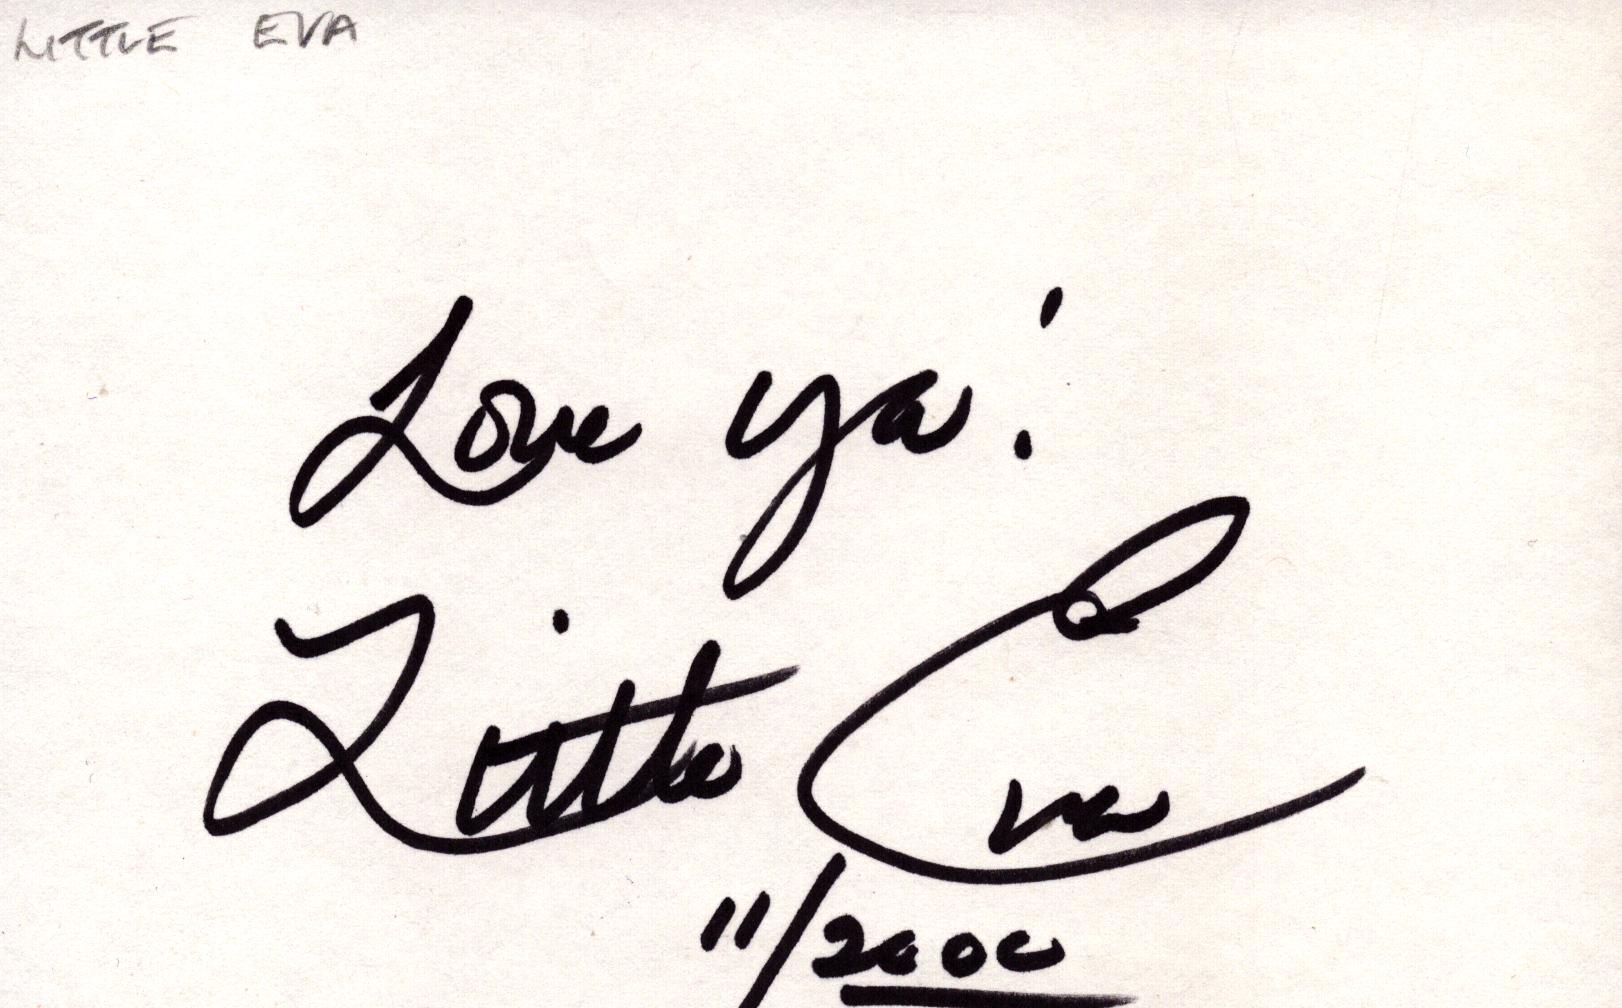 LITTLE EVA
Love ya!
Little Eva
11/2000